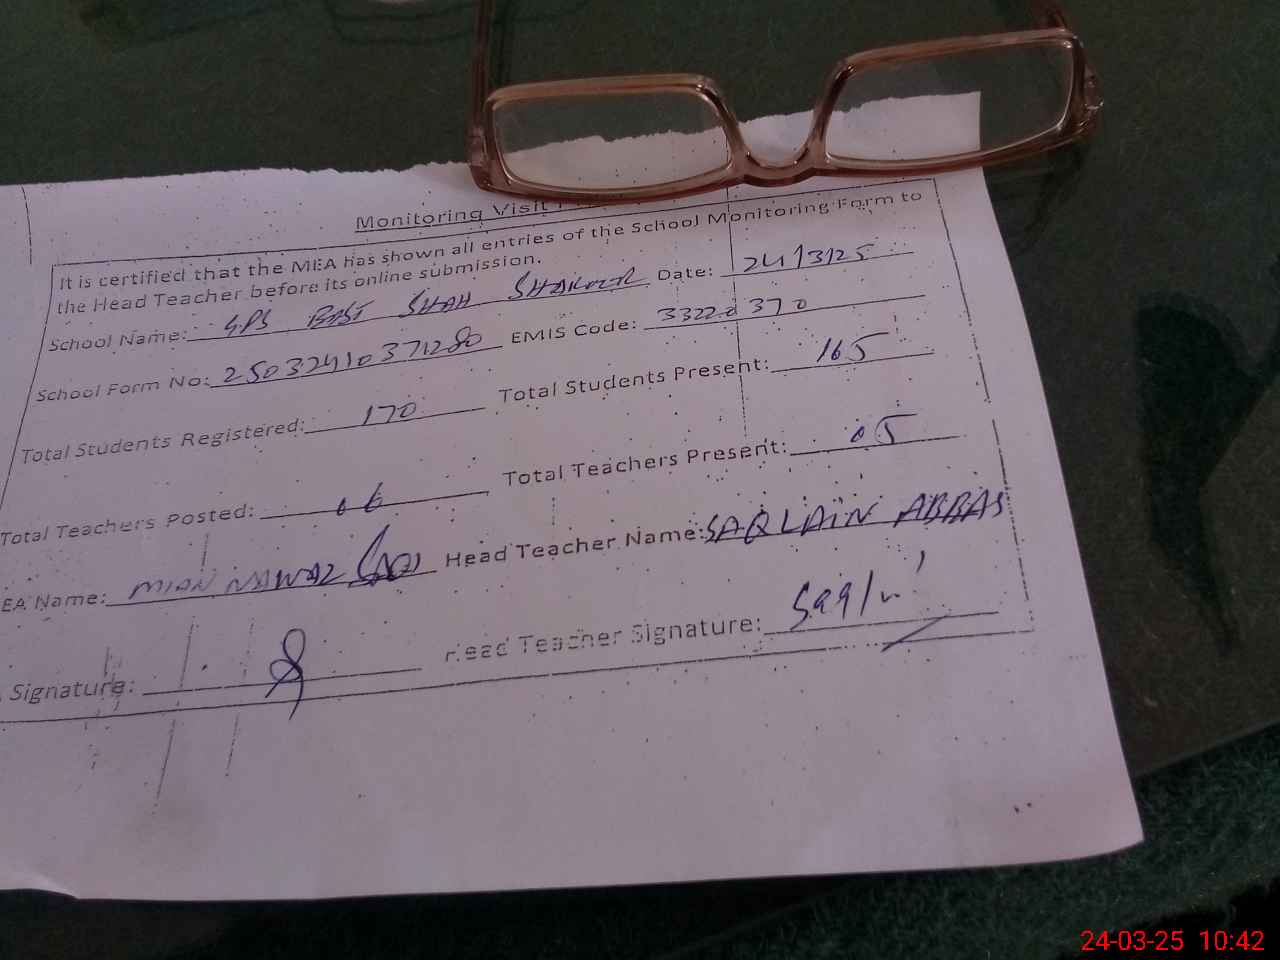 Monitoring Visit
It is certified that the MEA has shown all entries of the School Monitoring Form to
the Head Teacher before its online submission.
School Name: GPS BASTI SHAH Date: 24/3/25
School Form No: 25032410371280 EMIS Code: 33220370
Total Students Registered: 170 Total Students Present: 165
Total Teachers Posted: 06 Total Teachers Present: 05
EA Name: MIAN NAWAZ Head Teacher Name: SAQLAIN ABBAS
Signature: Head Teacher Signature:
24-03-25 10:42